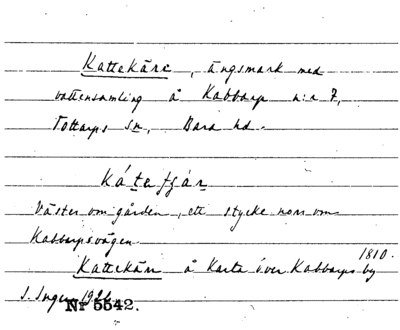 Kattekäre, ängsmark med
vattensamling å Kabbarp n:r 7,
Tottarps sn, Bara hd.
Väster om gården, ett stycke norr om
Kabbarpsvägen.
1810.
Kattekärr å Karta över Kabbarps by
Nr 5542.